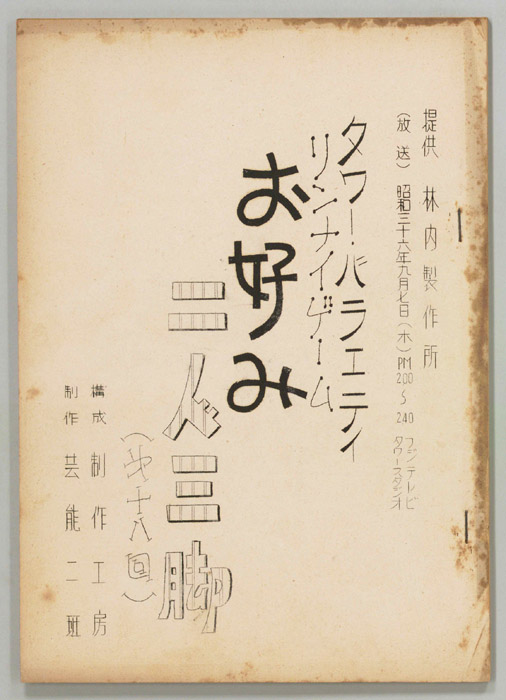 提供 林内製作所
(放送) 昭和三十六年九月七日(木)PM 200〜240 フジテレビ タワースタジオ
タワー・バラエティ
リンナイ・ゲーム
お好み
二人三脚
(第十八回)
構成 制作工房
制作 芸能二班